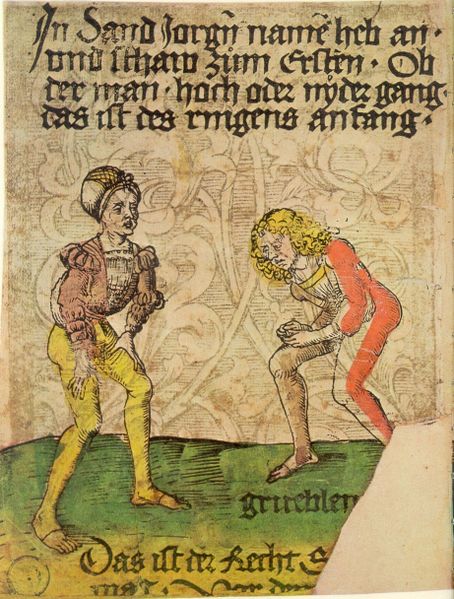 In Sand Jorgn̄ namē heb an ·
vnd schaw zům Ersten · Ob
der man · hoch oder nẏder gang ·
das ist des ringens anfang ·
grueblen
Das ist der Recht S